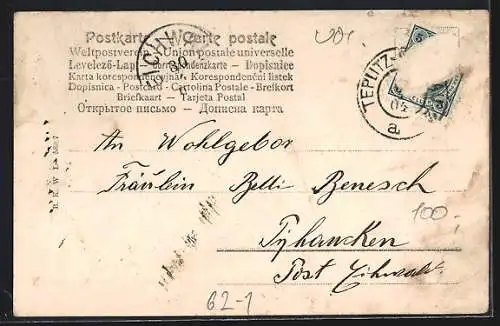 Postkarte — Carte postale
Weltpostverein — Union postale universelle
Levelező-Lap — Correspondenzkarte — Dopisnice
Karta korespondencyjna — Korespondenční listek
Dopisnica - Postcard - Cartolina Postale - Brefkort
Briefkaart — Tarjeta Postal
Открытое письмо — Дописна карта
TEPLITZ-
05
a
An Wohlgebor
Fräulein Belli Benesch
100,-
Post
62-1